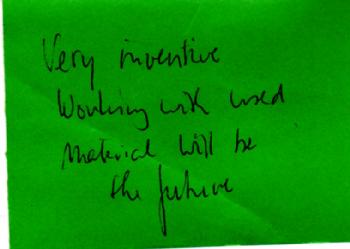 Very inventive
Working with used
material will be
the future